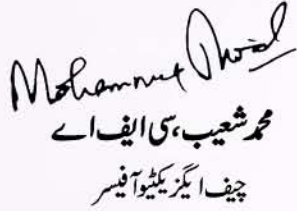 Mohammed Shoaib
محمد شعیب، سی ایف اے
چیف ایگزیکٹیو آفیسر